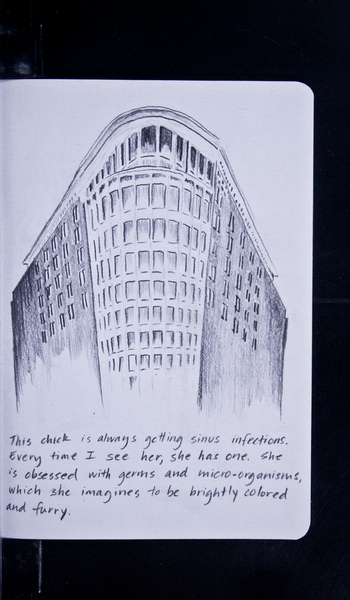 This chick is always getting sinus infections.
Every time I see her, she has one. She
is obsessed with germs and micro-organisms,
which she imagines to be brightly colored
and furry.